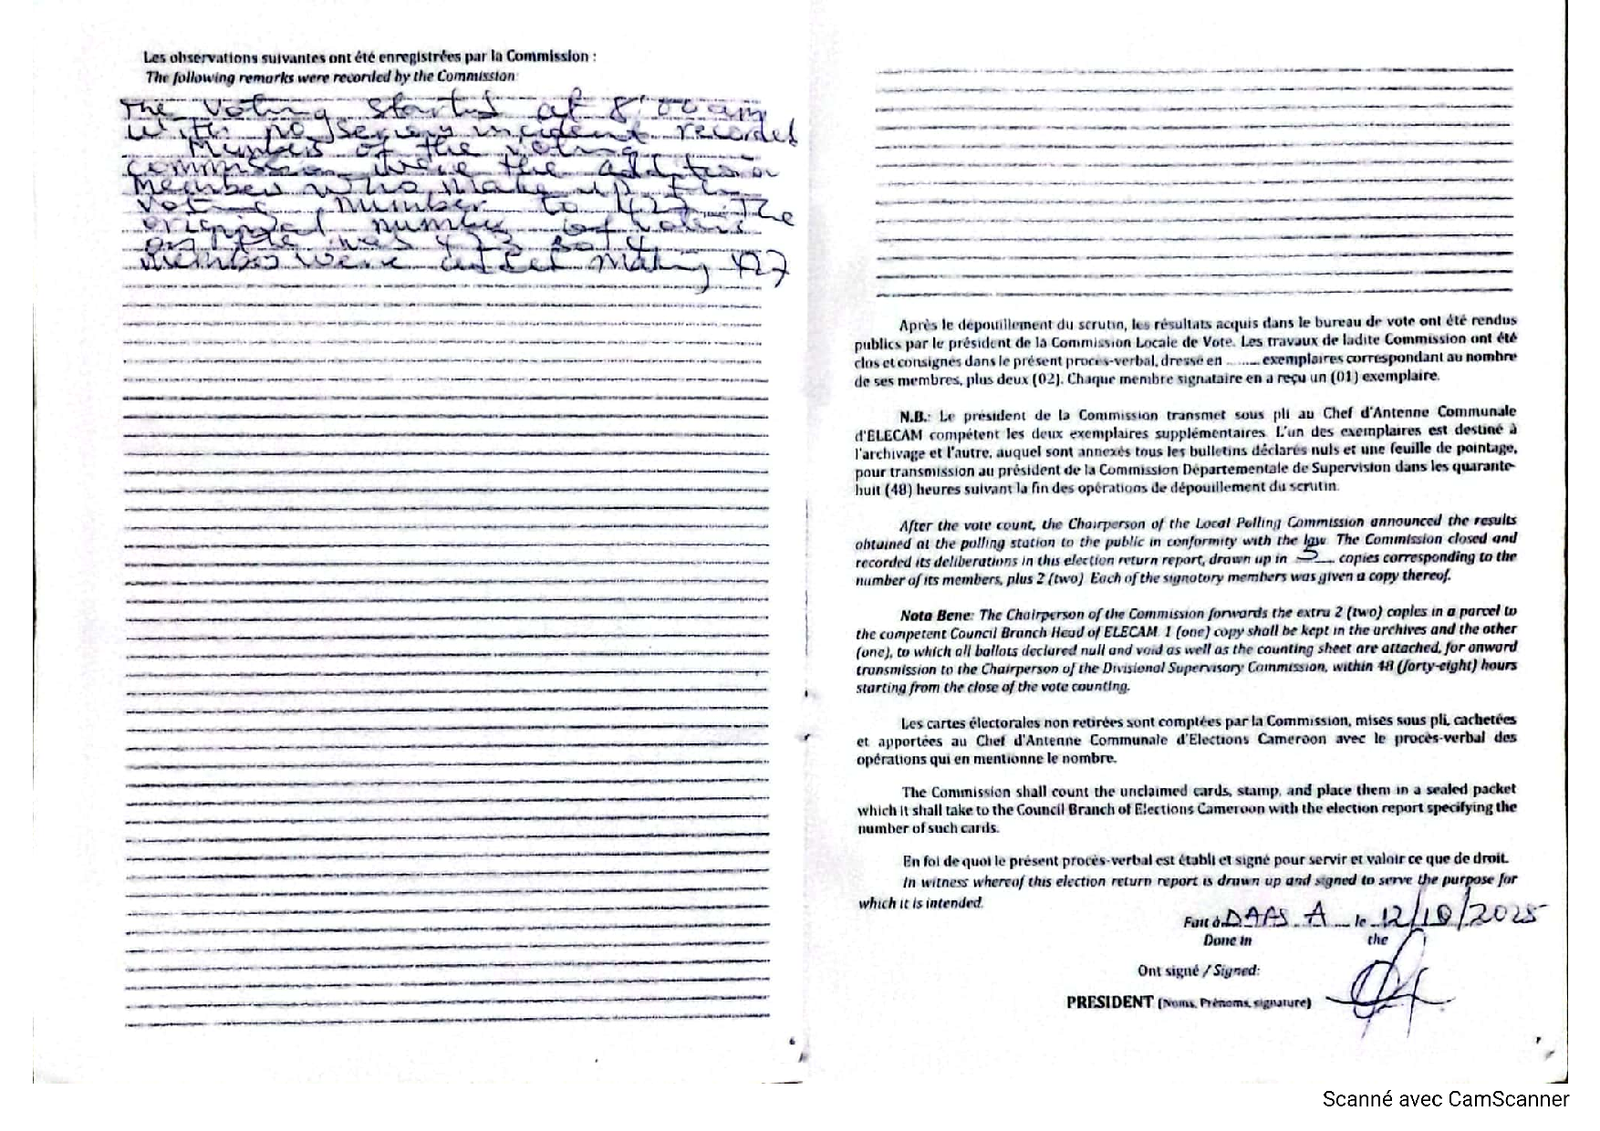 Les observations suivantes ont été enregistrées par la Commission :
The following remarks were recorded by the Commission
The voting started at 8:00 am
with no serious incident recorded
Members of the voting
commission were the addition
members who make up the
voting number to 427. The
original number of voters
was 423 so 4
members were added making 427
Après le dépouillement du scrutin, les résultats acquis dans le bureau de vote ont été rendus
publics par le président de la Commission Locale de Vote. Les travaux de ladite Commission ont été
clos et consignés dans le présent procès-verbal, dressé en ........ exemplaires correspondant au nombre
de ses membres, plus deux (02). Chaque membre signataire en a reçu un (01) exemplaire.
N.B.: Le président de la Commission transmet sous pli au Chef d'Antenne Communale
d'ELECAM compétent les deux exemplaires supplémentaires. L'un des exemplaires est destiné à
l'archivage et l'autre, auquel sont annexés tous les bulletins déclarés nuls et une feuille de pointage,
pour transmission au président de la Commission Départementale de Supervision dans les quarante-
huit (48) heures suivant la fin des opérations de dépouillement du scrutin.
After the vote count, the Chairperson of the Local Polling Commission announced the results
obtained at the polling station to the public in conformity with the law. The Commission closed and
recorded its deliberations in this election return report, drawn up in 5 copies corresponding to the
number of its members, plus 2 (two) Each of the signatory members was given a copy thereof.
Nota Bene: The Chairperson of the Commission forwards the extra 2 (two) copies in a parcel to
the competent Council Branch Head of ELECAM. 1 (one) copy shall be kept in the archives and the other
(one), to which all ballots declared null and void as well as the counting sheet are attached, for onward
transmission to the Chairperson of the Divisional Supervisory Commission, within 48 (forty-eight) hours
starting from the close of the vote counting.
Les cartes électorales non retirées sont comptées par la Commission, mises sous pli, cachetées
et apportées au Chef d'Antenne Communale d'Elections Cameroon avec le procès-verbal des
opérations qui en mentionne le nombre.
The Commission shall count the unclaimed cards, stamp, and place them in a sealed packet
which it shall take to the Council Branch of Elections Cameroon with the election report specifying the
number of such cards.
En foi de quoi le présent procès-verbal est établi et signé pour servir et valoir ce que de droit.
In witness whereof this election return report is drawn up and signed to serve the purpose for
which it is intended.
Fait à DAAS A le 12/10/2025
Done in the
Ont signé / Signed:
PRESIDENT (Noms, Prénoms, signature)
6
7
Scanné avec CamScanner